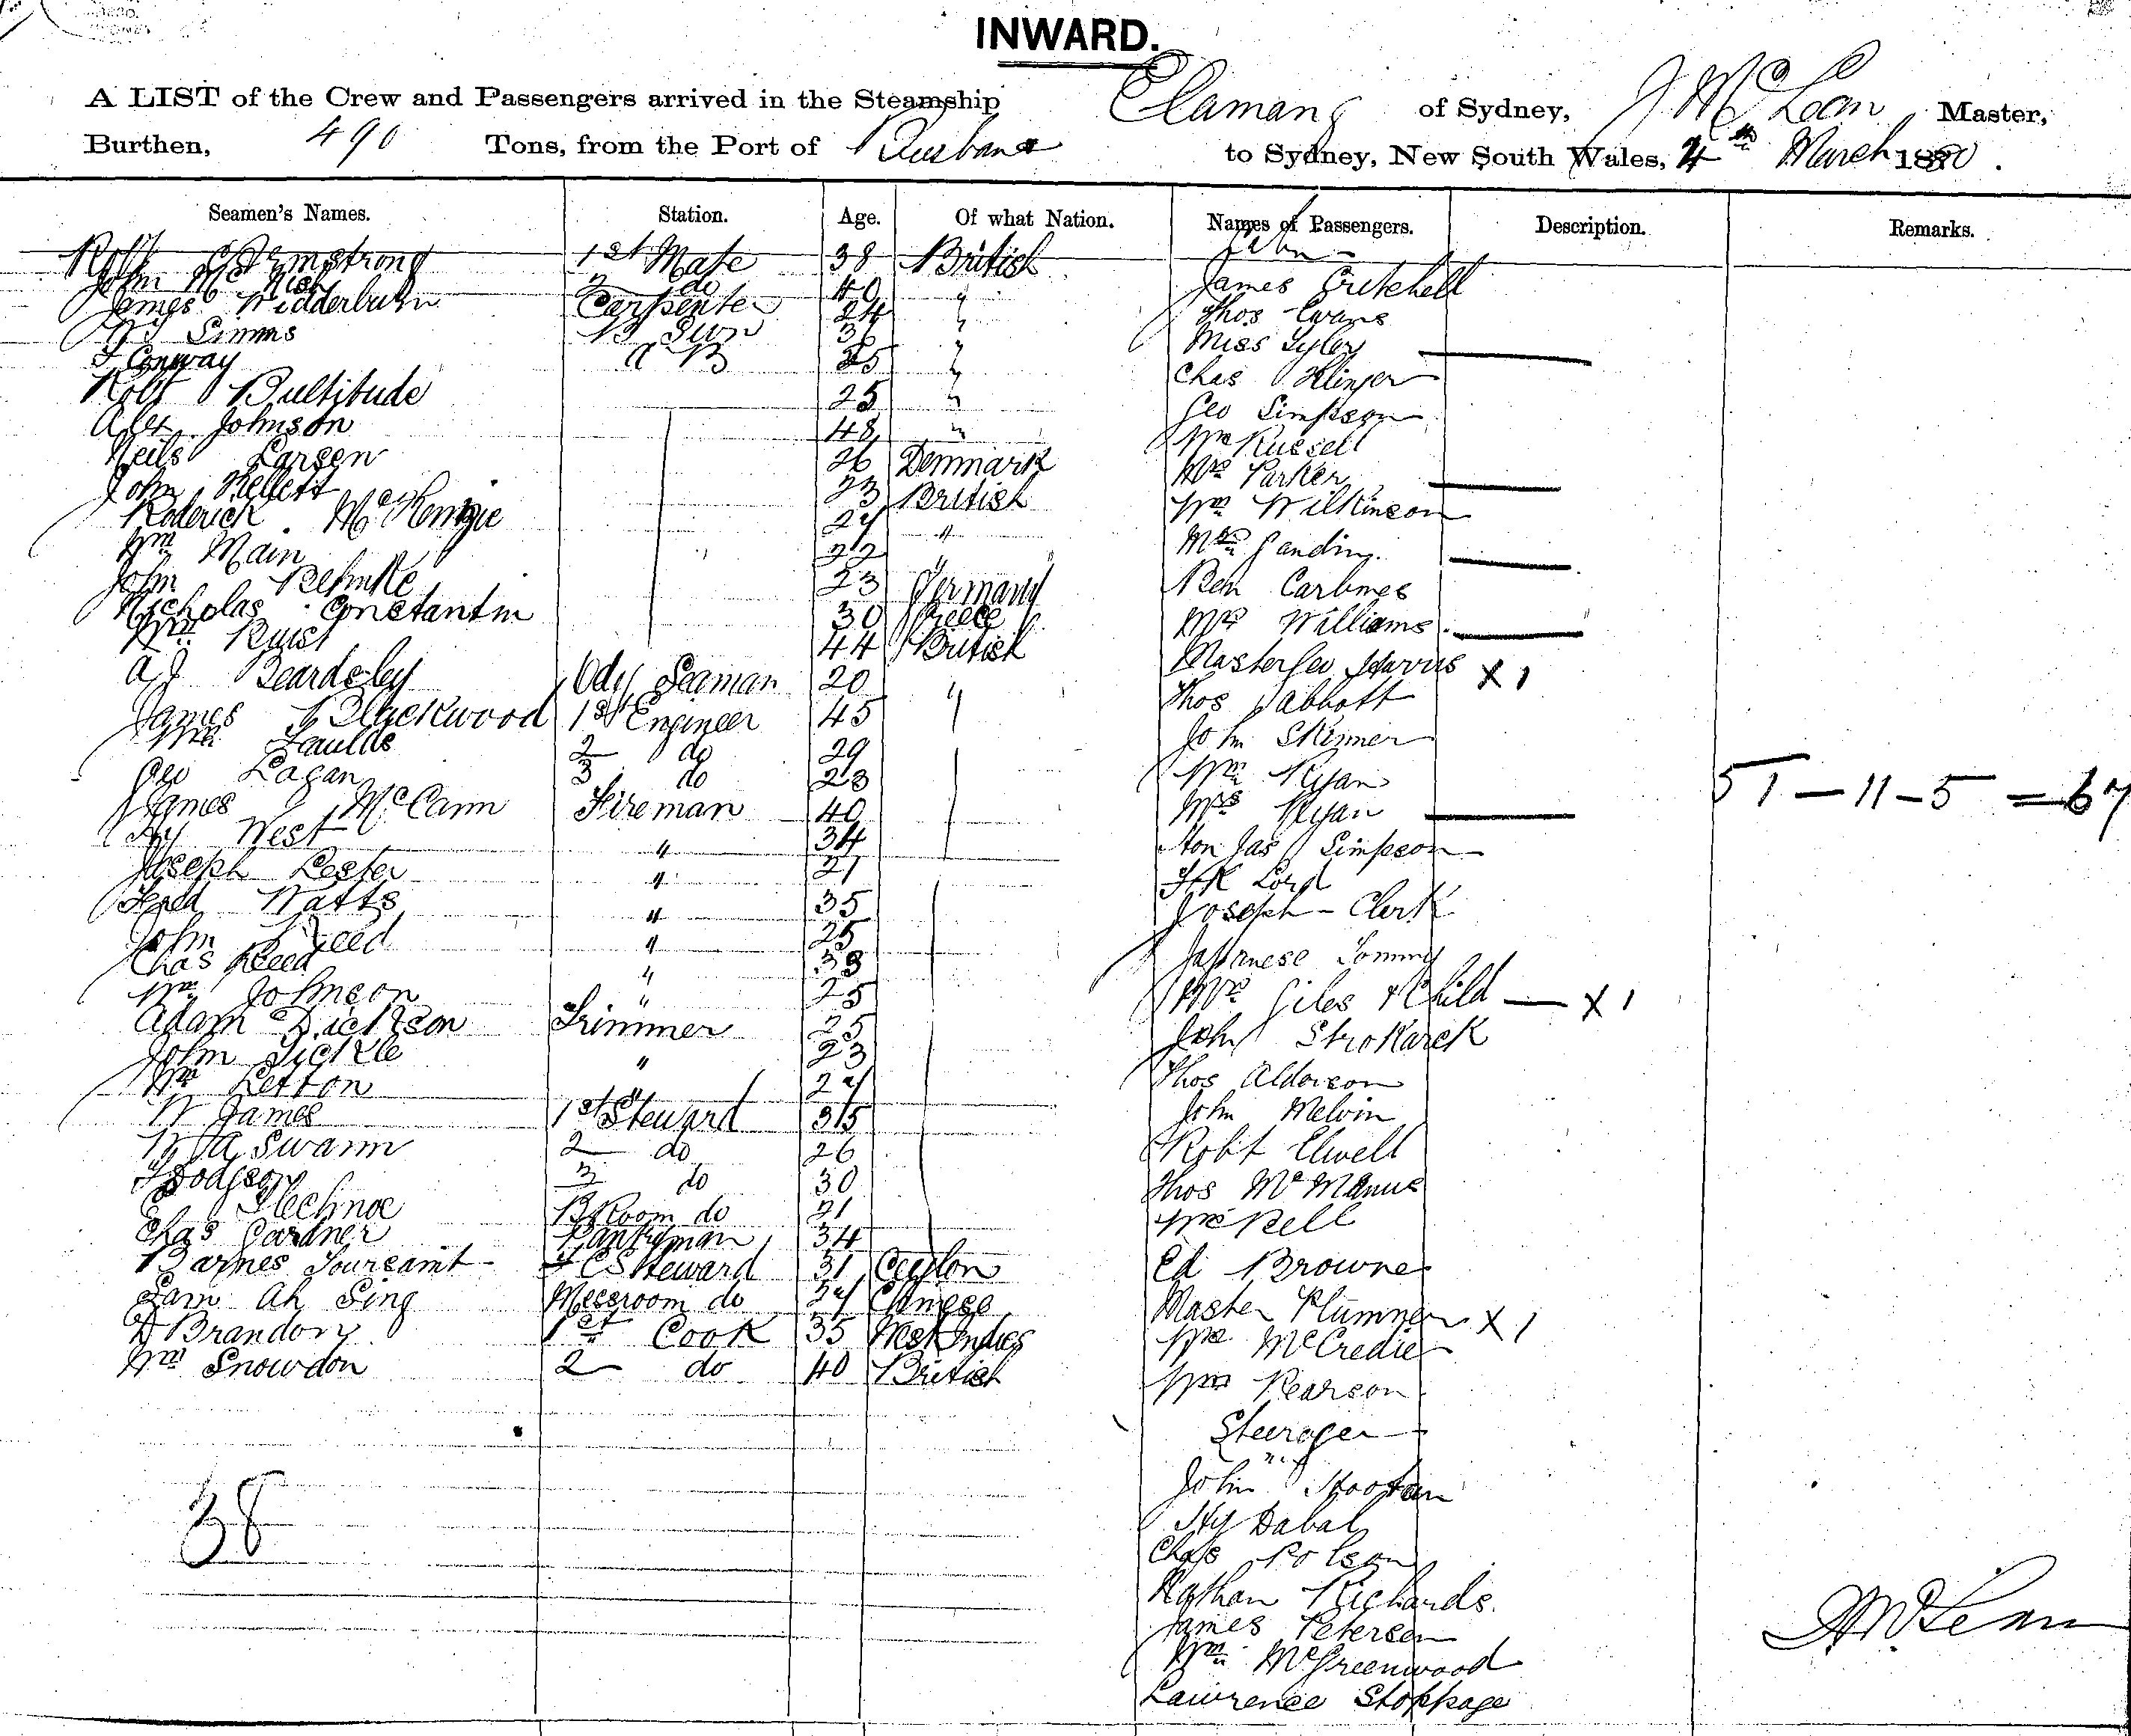 INWARD.
A LIST of the Crew and Passengers arrived in the Steamship Elamang of Sydney, J McLean Master,
Burthen, 490 Tons, from the Port of Brisbane to Sydney, New South Wales, 4th March 1880.
Seamen's Names. Station. Age. Of what Nation. Names of Passengers. Description. Remarks.
Robt Armstrong 1st Mate 38 British
John Mc 2 do 40 "
James Widderburn Carpenter 24 "
Simms "
J Conway A B 25 "
Robt Bultitude 25 "
Alex Johnson 48 "
Neils Larsen 26 Denmark
John Kellett 23 British
Roderick McKenzie 24 "
Wm Main 22 "
John Behnke 23 Germany
Nicholas Constantin 30 Greece
Wm Rust 44 British
A J Beardsley Ody Seaman 20 "
James Blackwood 1st Engineer 45
Wm Faulds 2 do 29
Geo Lagan 3 do 23
James McCann Fireman 40
Hy West " 34
Joseph Lester " 21
Watts " 35
John Reed " 25
Chas Reed " 33
Wm Johnson " 25
Adam Dickson Trimmer 25
John Tickle " 23
Wm Letton " 24
W James 1st Steward 35
W A Swann 2 do 26
J Dodgson 3 do 30
B Room do 21
Chas Gardner Pantryman 34
Barnes Toursaint F C Steward 31 Ceylon
Sam Ah Sing Messroom do 24 Chinese
Brandon 1st Cook 35 West Indies
Wm Snowdon 2 do 40 British
38
James Critchell
Thos Evans
Miss Tyler
Chas Klinger
Geo Simpson
Wm Russell
Mrs Parker
Wm Wilkinson
Mrs
Ben Carbines
Mrs Williams
Master Geo Harris X 1
Thos Abbott
John Skinner
Wm Ryan
Mrs Ryan
Hon Jas Simpson
Lord
Joseph Clark
Japanese Tommy
Mrs Giles & Child X 1
John Strokarck
Thos Alderson
John Melvin
Robt Elwell
Thos McManus
Wm Bell
Ed Browne
Master Plummer X 1
Wm McCredie
Wm Pearson
Steerage
John
Hy Dabal
Chas Polson
Nathan Richards
James Petersen
Wm McGreenwood
Lawrence Stoppage
51 - 11 - 5 = 67
J McLean